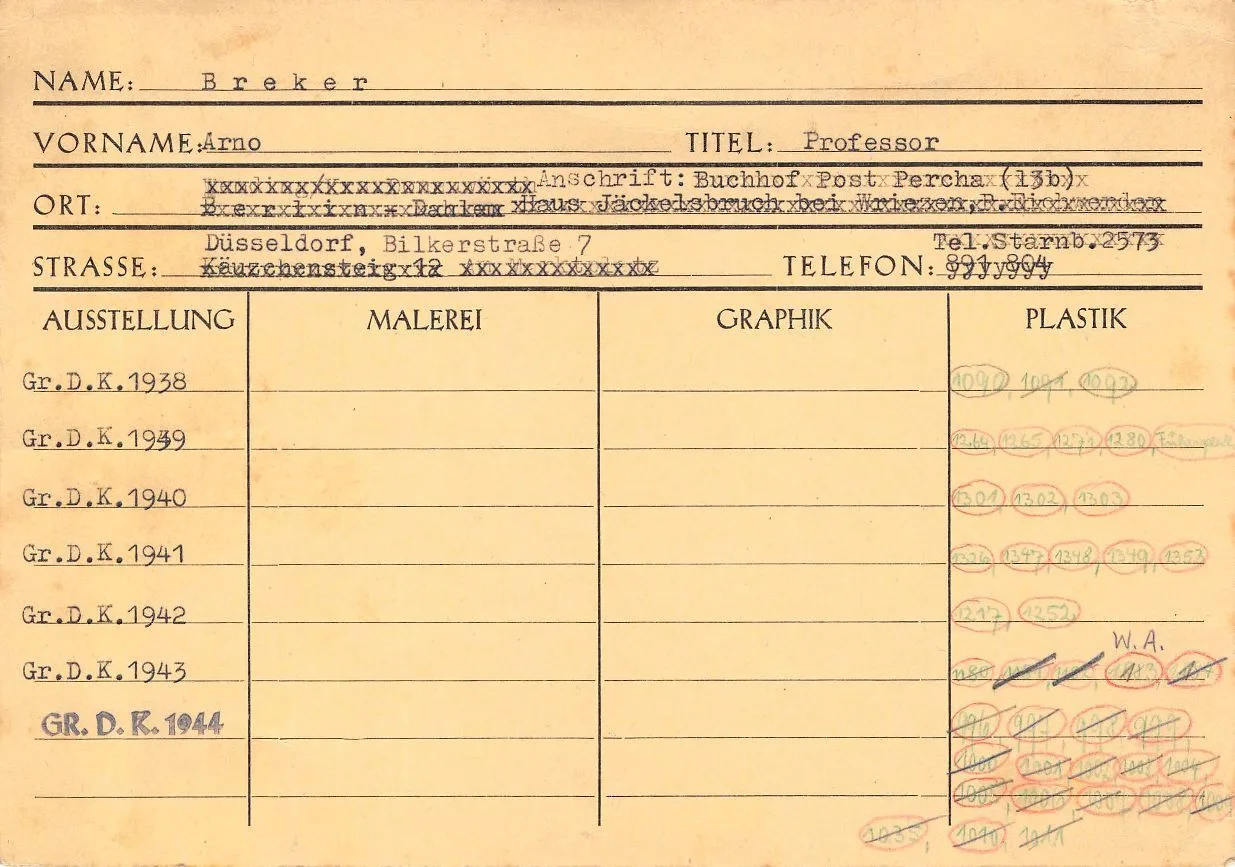 NAME: Breker
VORNAME: Arno TITEL: Professor
Anschrift: Buchhof Post Percha (13b)
ORT: Berlin-Dahlem Haus Jäckelsbruch bei Wriezen,
Düsseldorf, Bilkerstraße 7 Tel.Starnb.2573
STRASSE: Käuzchensteig 12 TELEFON: 891 804
AUSSTELLUNG MALEREI GRAPHIK PLASTIK
Gr.D.K.1938 1090, 1091, 1092
Gr.D.K.1939 1264, 1265, 1271, 1280,
Gr.D.K.1940 1301, 1302, 1303
Gr.D.K.1941 1326, 1347, 1348, 1349, 1353
Gr.D.K.1942 1217, 1252
W.A.
Gr.D.K.1943 1180, 1183
GR. D. K. 1944 996, 997, 998, 999
1000 1001 1002 1003 1004,
1005,
1035, 1010, 1011